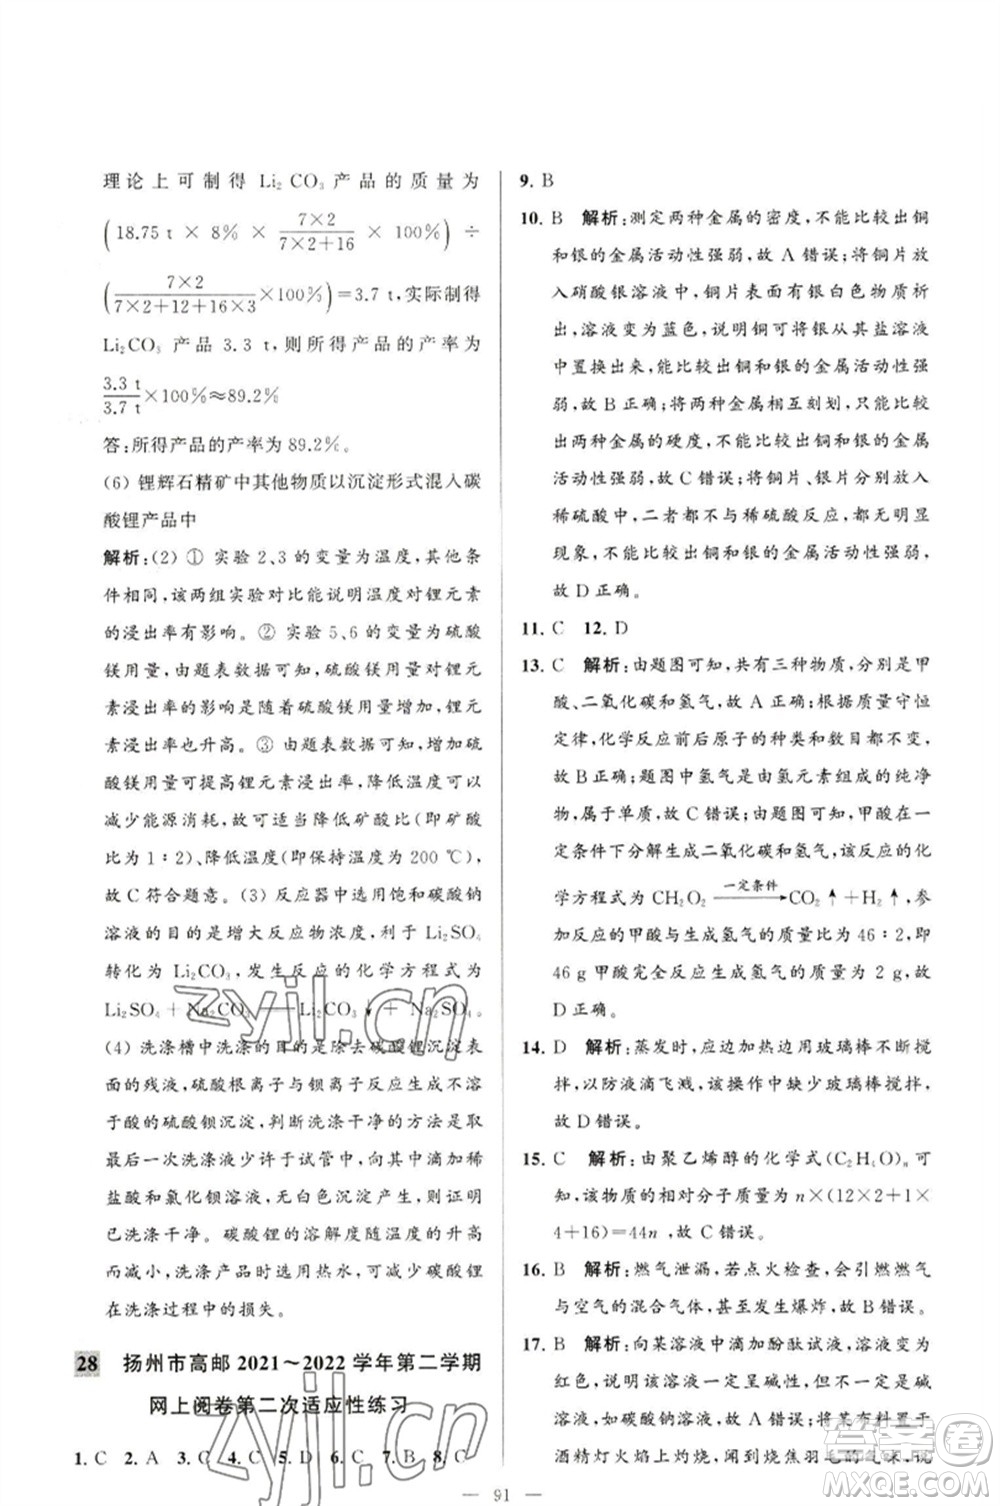 理论上可制得 Li₂CO₃ 产品的质量为
(18.75 t × 8% × 7×2/(7×2+16) × 100%) ÷
(7×2/(7×2+12+16×3)×100%)=3.7 t,实际制得
Li₂CO₃ 产品 3.3 t,则所得产品的产率为
3.3 t/3.7 t×100%≈89.2%
答:所得产品的产率为 89.2%。
(6) 锂辉石精矿中其他物质以沉淀形式混入碳
酸锂产品中
解析:(2) ① 实验 2、3 的变量为温度,其他条
件相同,该两组实验对比能说明温度对锂元素
的浸出率有影响。② 实验 5、6 的变量为硫酸
镁用量,由题表数据可知,硫酸镁用量对锂元
素浸出率的影响是随着硫酸镁用量增加,锂元
素浸出率也升高。③ 由题表数据可知,使用硫
酸镁可提高锂元素浸出率,降低温度可以
减少能源消耗,故可适当降低矿酸比(即矿酸
比为 1∶2)、降低温度(即保持温度为 200 ℃),
故 C 符合题意。(3) 反应器中选用饱和碳酸钠
溶液的目的是增大反应物浓度,利于 Li₂SO₄
转化为 Li₂CO₃,发生反应的化学方程式为
Li₂SO₄ + Na₂CO₃ = Li₂CO₃↓ + Na₂SO₄。
(4) 洗涤槽中洗涤的目的是除去碳酸锂沉淀表
面的残液,硫酸根离子与钡离子反应生成不溶
于酸的硫酸钡沉淀,判断洗涤干净的方法:取
最后一次洗涤液少许于试管中,向其中滴加稀
盐酸和氯化钡溶液,无白色沉淀产生,则证明
已洗涤干净。碳酸锂的溶解度随温度的升高
而减小,洗涤产品时选用热水,可减少碳酸锂
在洗涤过程中的损失。
28 扬州市高邮 2021～2022 学年第二学期
网上阅卷第二次适应性练习
1. C 2. A 3. C 4. C 5. D 6. D 7. B 8. C
9. B
10. B 解析:测定两种金属的密度,不能比较出铜
和银的金属活动性强弱,故 A 错误;将铜片放
入硝酸银溶液中,铜片表面有银白色物质析
出,溶液变为蓝色,说明铜可将银从其盐溶液
中置换出来,能比较出铜和银的金属活动性强
弱,故 B 正确;将两种金属相互刻划,只能比较
两种金属的硬度,不能比较出铜和银的金属
活动性强弱,故 C 错误;将铜片、银片分别放入
稀硫酸中,二者都不与稀硫酸反应,都无明显
现象,不能比较出铜和银的金属活动性强弱,
故 D 正确。
11. C 12. D
13. C 解析:由题图可知,共有三种物质,分别是甲
酸、二氧化碳和氢气,故 A 正确;根据质量守恒
定律,化学反应前后原子的种类和数目都不变,
故 B 正确;题图中氢气是由氢元素组成的纯净
物,属于单质,故 C 错误;由题图可知,甲酸在一
定条件下分解生成二氧化碳和氢气,该反应的化
学方程式为 CH₂O₂ —一定条件→ CO₂↑+H₂↑,参
加反应的甲酸与生成氢气的质量为 46∶2,即
46 g 甲酸完全反应生成氢气的质量为 2 g,故
D 正确。
14. D 解析:蒸发时,应边加热边用玻璃棒不断搅
拌,以防液滴飞溅,该操作中缺少玻璃棒搅拌,
故 D 错误。
15. C 解析:由聚乙烯醇的化学式(C₂H₄O)ₙ 可
知,该物质的相对分子质量为 n×(12×2+1×
4+16)=44n,故 C 错误。
16. B 解析:燃气泄漏,若点火检查,会引燃燃气
与空气的混合气体,甚至发生爆炸,故 B 错误。
17. B 解析:向某溶液中滴加酚酞试液,溶液变
红色,
碱溶液,
酒精灯火焰上灼烧,闻到烧焦羽毛的气味,说
91
zyjl.cn
答案圈
MXQE.COM